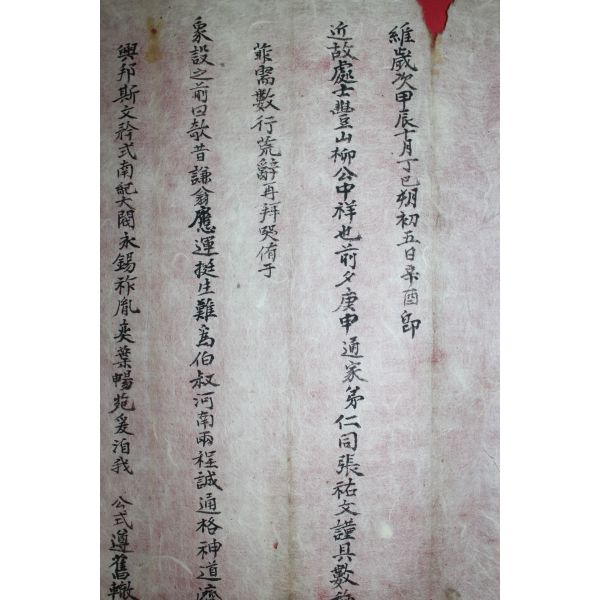 維歲次甲辰十月丁巳朔初五日辛酉卽
近故處士豊山柳公中祥也前夕庚申通家弟仁同張祐文謹具數種
菲需數行荒辭再拜哭侑于
象設之前曰欷昔謙翁應運挺生難爲伯叔河南兩程誠通格神道濟
興邦斯文矜式南紀大閥永錫祚胤奕葉暢苑爰洎我 公式遵舊轍